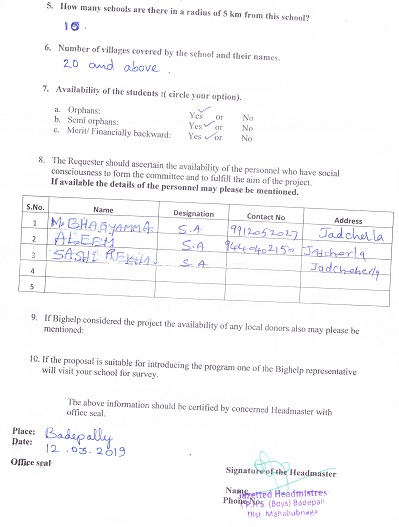 5. How many schools are there in a radius of 5 km from this school?
10.
6. Number of villages covered by the school and their names.
20 and above.
7. Availability of the students :( circle your option).
a. Orphans: Yes or No
b. Semi orphans: Yes or No
c. Merit/ Financially backward: Yes or No
8. The Requester should ascertain the availability of the personnel who have social
consciousness to form the committee and to fulfill the aim of the project.
If available the details of the personnel may please be mentioned.
S.No. Name Designation Contact No Address
1 M. BHAGYAMMA S.A 9912052027 Jadcherla
2 ALEEM S.A 9440402150 Jadcherla
3 SASHI REKHA. S.A Jadcheherla
4
5
9. If Bighelp considered the project the availability of any local donors also may please be
mentioned:
10. If the proposal is suitable for introducing the program one of the Bighelp representative
will visit your school for survey.
The above information should be certified by concerned Headmaster with
office seal.
Place: Badepally
Date: 12.03.2019
Office seal
Signature of the Headmaster
Name
Gazetted Headmistres
Phone No:
(Boys) Badepall
Dist. Mahabubnaga